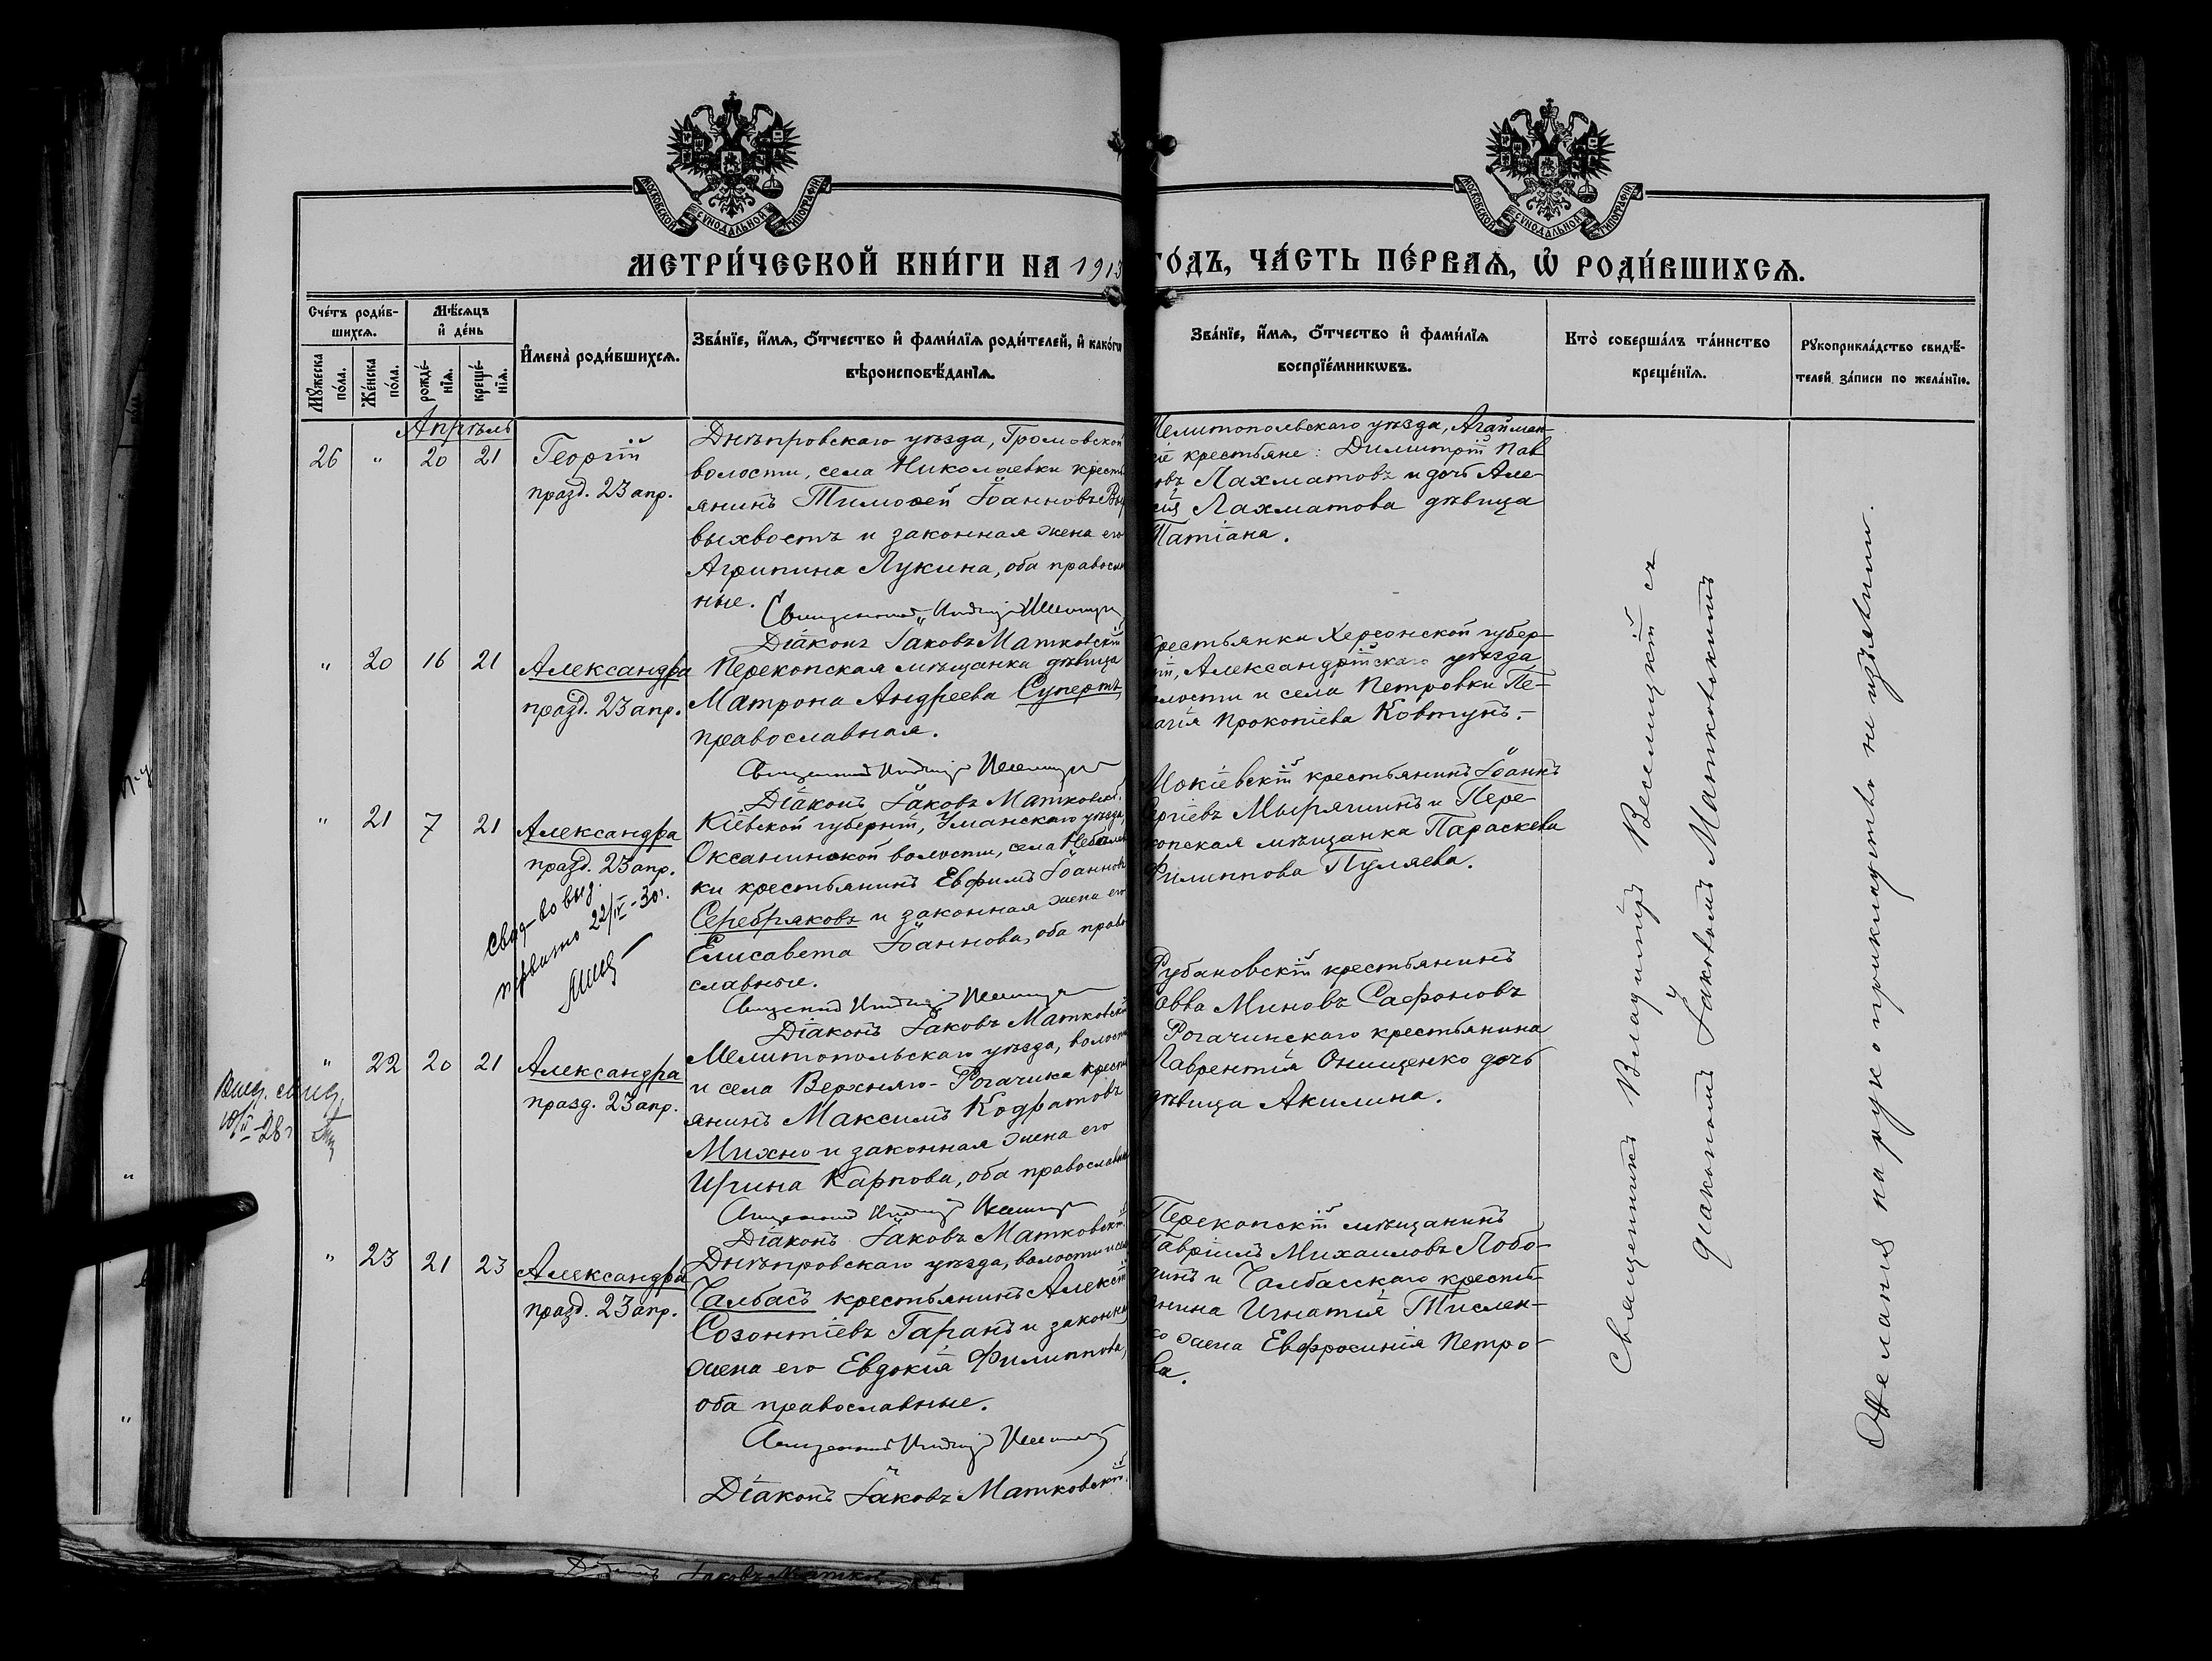 МОСКОВСКОЙ СѴНОДАЛЬНОЙ ТИПОГРАФІИ
МОСКОВСКОЙ СѴНОДАЛЬНОЙ ТИПОГРАФІИ
МЕТРИ́ЧЕСКОЙ КНИ́ГИ НА 1913
ГО́ДЪ, ЧА́СТЬ ПЕ́РВАѦ, Ѡ҆ РОДИ́ВШИХСѦ.
Сче́тъ роди́в-
шихсѧ.
Мѣ́сѧцъ
и҆ де́нь
Мꙋ́жеска по́ла.
Же́нска по́ла.
рожде́-
нїѧ.
креще́-
нїѧ.
И҆мена̀ роди́вшихсѧ.
Зва́нїе, и҆́мѧ, ѻ҆́тчество и҆ фами́лїѧ роди́телей, и҆ како́гѡ
вѣроисповѣ́данїѧ.
Зва́нїе, и҆́мѧ, ѻ҆́тчество и҆ фами́лїѧ
воспрїе́мникѡвъ.
Кто̀ соверша́лъ та́инство
креще́нїѧ.
Рꙋкоприкла́дство свидѣ́-
телей за́писи по жела́нїю.
Апрѣль
26 " 20 21
Георгій
празд. 23 апр.
Днѣпровскаго уѣзда, Громовской
волости, села Николаевки кресть
янинъ Тимоѳей Іоанновъ Вы
выхвостъ и законная жена его
Агрипина Лукина, оба правосла
ные.
Священникъ
Діаконъ Іаковъ Матковскій
Мелитопольскаго уѣзда, Агайман-
кіе крестьяне: Димитрій Пав
овъ Лахматовъ и дочь Але-
сія Лахматова дѣвица
Татіана.
" 20 16 21
Александра
празд. 23 апр.
Перекопская мѣщанка дѣвица
Матрона Андреева Супертъ,
православная.
Священникъ
Діаконъ Іаковъ Матковскій.
крестьянка Херсонской губер-
ніи, Александрійскаго уѣзда
олости и села Петровки Пе-
лагія Прокопіева Ковтунъ.-
" 21 7 21
Александра
празд. 23 апр.
Свид-во выд.
22/IV-30г.
Кіевской губерніи, Уманскаго уѣзда,
Оксанинской волости, села Небелев
ки крестьянинъ Евфимъ Іоаннов
Серебряковъ и законная жена его
Елисавета Іоаннова, оба право
славные.
Священникъ
Діаконъ Іаковъ Матковскій
Мокіевскій крестьянинъ Іоаннъ
Сергіевъ Мырячинъ и Пере
копская мѣщанка Параскева
Филиппова Пуляева.
" 22 20 21
Александра
празд. 23 апр.
Выд. свид.
Мелитопольскаго уѣзда, волости
и села Верхняго-Рогачика кресть
янинъ Максимъ Кодратовъ
Михно и законная жена его
Ирина Карпова, оба православны
Священникъ
Діаконъ Іаковъ Матковскій.
Рубановскій крестьянинъ
Савва Миновъ Сафоновъ
Рогачинскаго крестьянина
Лаврентія Онищенко дочь
дѣвица Акилина.
" 23 21 23
Александра
празд. 23 апр.
Днѣпровскаго уѣзда, волости и села
Чалбасъ крестьянинъ Алексѣй
Созонтіевъ Таранъ и законны
жена его Евдокія Филиппова,
оба православные.
Священникъ
Діаконъ Іаковъ Матковскій.
Перекопскій мѣщанинъ
Гавріилъ Михаиловъ Лобо-
динъ и Чалбасскаго кресть-
янина Игнатія Тислен-
ко жена Евфросинія Петро-
ва.
Священникъ Владиміръ Веселицкій съ
діакономъ Іаковомъ Матковскимъ
Желанія на рукоприкладство не изъявили.